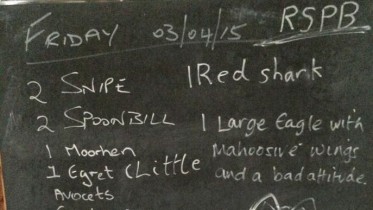 FRIDAY 03/04/15 RSPB
2 SNIPE
2 SPOONBILL
1 Moorhen
1 Egret (Little
Avocets
1 Red shark
1 LARGE Eagle with
Mahoosive wings
and a bad attitude.